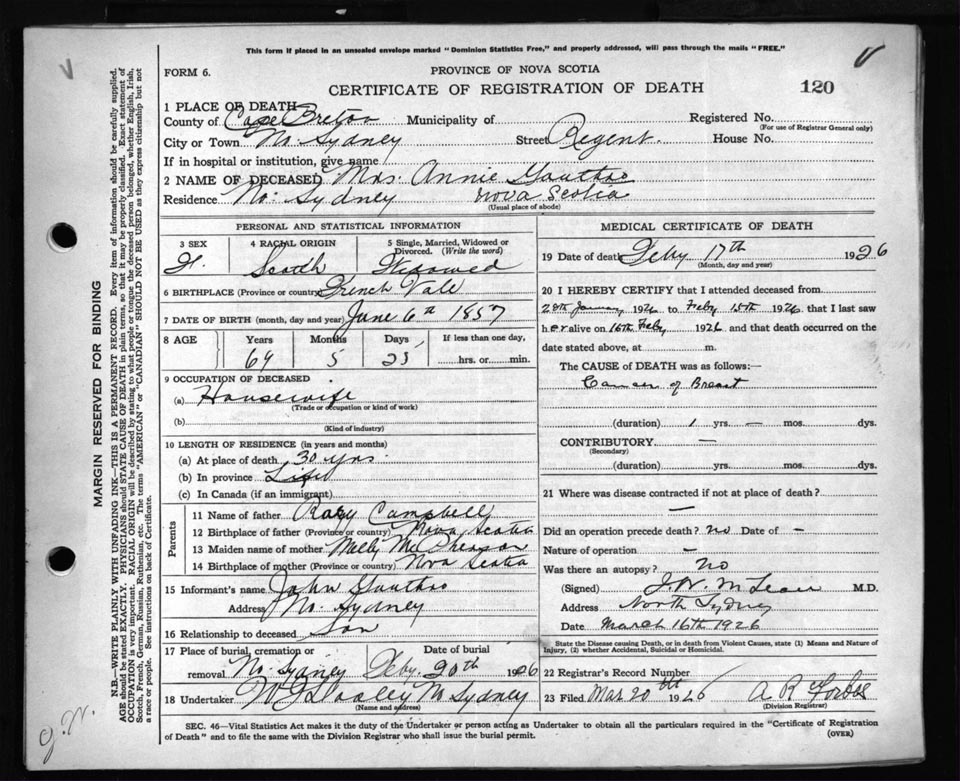 This form if placed in an unsealed envelope marked "Dominion Statistics Free," and properly addressed, will pass through the mails "FREE."
FORM 6.
PROVINCE OF NOVA SCOTIA
CERTIFICATE OF REGISTRATION OF DEATH
120
1 PLACE OF DEATH
County of Cape Breton Municipality of Registered No.
(For use of Registrar General only)
City or Town No Sydney Street Regent. House No.
If in hospital or institution, give name
2 NAME OF DECEASED Mrs. Annie Gauthro
Residence No. Sydney Nova Scotia
(Usual place of abode)
PERSONAL AND STATISTICAL INFORMATION
3 SEX 4 RACIAL ORIGIN 5 Single, Married, Widowed or Divorced. (Write the word)
F. Scotch Widowed
6 BIRTHPLACE (Province or country) French Vale
7 DATE OF BIRTH (month, day and year) June 6th 1857
8 AGE Years Months Days If less than one day,
69 5 25 hrs. or min.
9 OCCUPATION OF DECEASED
(a) Housewife
(Trade or occupation or kind of work)
(b)
(Kind of industry)
10 LENGTH OF RESIDENCE (in years and months)
(a) At place of death 30 yrs.
(b) In province Life
(c) In Canada (if an immigrant)
Parents
11 Name of father Rory Campbell
12 Birthplace of father (Province or country) Nova Scotia
13 Maiden name of mother McPherson
14 Birthplace of mother (Province or country) Nova Scotia
15 Informant's name John Gauthro
Address No. Sydney
16 Relationship to deceased Son
17 Place of burial, cremation or removal Date of burial
No. Sydney Feby. 20th 1926
18 Undertaker W J Dooley N Sydney
(Name and address)
MEDICAL CERTIFICATE OF DEATH
19 Date of death Feby 17th 1926
(Month, day and year)
20 I HEREBY CERTIFY that I attended deceased from
28th January 1926 to Feby 15th 1926 that I last saw
her alive on 16th Feby 1926 and that death occurred on the
date stated above, at m.
The CAUSE of DEATH was as follows:—
Cancer of Breast
(duration) 1 yrs. — mos. dys.
CONTRIBUTORY —
(Secondary)
(duration) yrs. mos. dys.
21 Where was disease contracted if not at place of death?
—
Did an operation precede death? no Date of —
Nature of operation —
Was there an autopsy? no
(Signed) J. W. McLean M.D.
Address North Sydney
Date March 16th 1926
State the Disease causing Death, or in death from Violent Causes, state (1) Means and Nature of Injury, (2) whether Accidental, Suicidal or Homicidal.
22 Registrar's Record Number
23 Filed Mar 20th 1926 A R Forbes
(Division Registrar)
SEC. 46—Vital Statistics Act makes it the duty of the Undertaker or person acting as Undertaker to obtain all the particulars required in the "Certificate of Registration
of Death" and to file the same with the Division Registrar who shall issue the burial permit. (OVER)
MARGIN RESERVED FOR BINDING
N.B.—WRITE PLAINLY WITH UNFADING INK—THIS IS A PERMANENT RECORD. Every item of information should be carefully supplied.
AGE should be stated EXACTLY. PHYSICIANS should STATE CAUSE OF DEATH in plain terms, so that it may be properly classified. Exact statement of
OCCUPATION is very important. RACIAL ORIGIN will be described by stating to what people or tongue the deceased person belonged, whether English, Irish,
Scotch, French, German, Russian, Ruthenian, etc. The terms "AMERICAN" or "CANADIAN" SHOULD NOT BE USED as they express citizenship but not
a race or people. See instructions on back of Certificate.